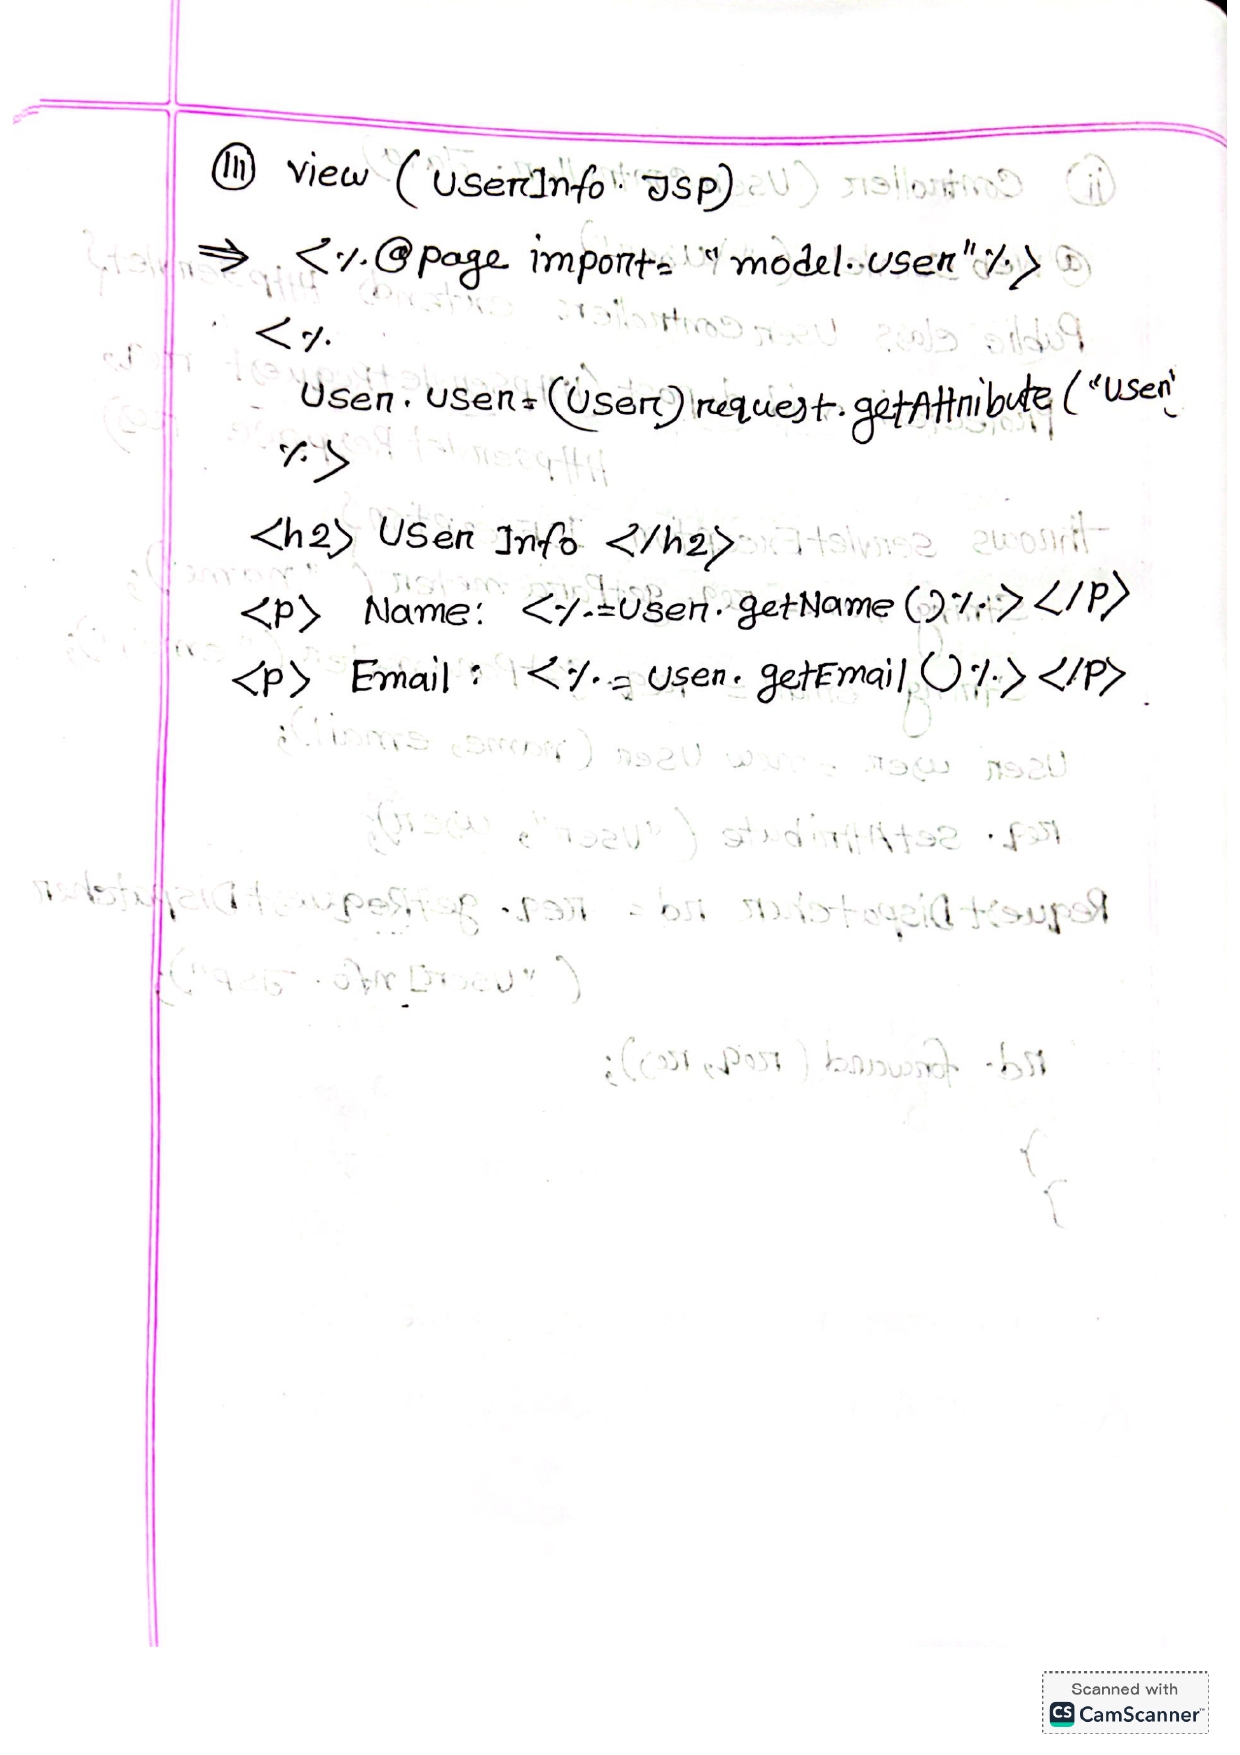 (iii) view (UserInfo. JSP)
⇒ <%@page import= "model.user"%>
<%
User. user=(User)request.getAttribute("User"
%>
<h2> User Info </h2>
<p> Name: <%=User.getName()%></p>
<p> Email: <%= user.getEmail()%></p>
Scanned with
CS CamScanner